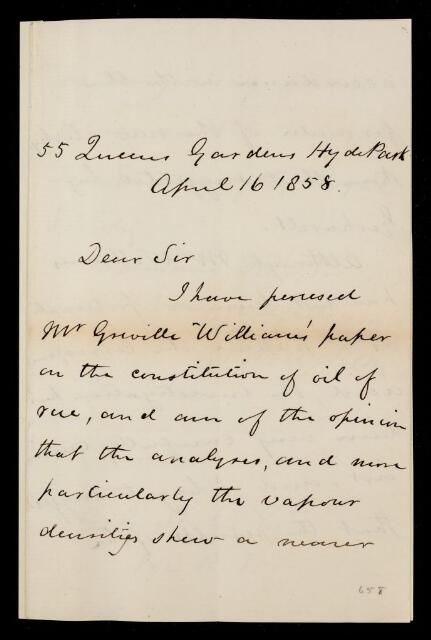 55 Queens Gardens Hyde Park
April 16 1858.
Dear Sir
I have perused
Mr Greville Williams' paper
on the constitution of oil of
rue, and am of the opinion
that the analyses, and more
particularly the vapour
densities shew a nearer
658